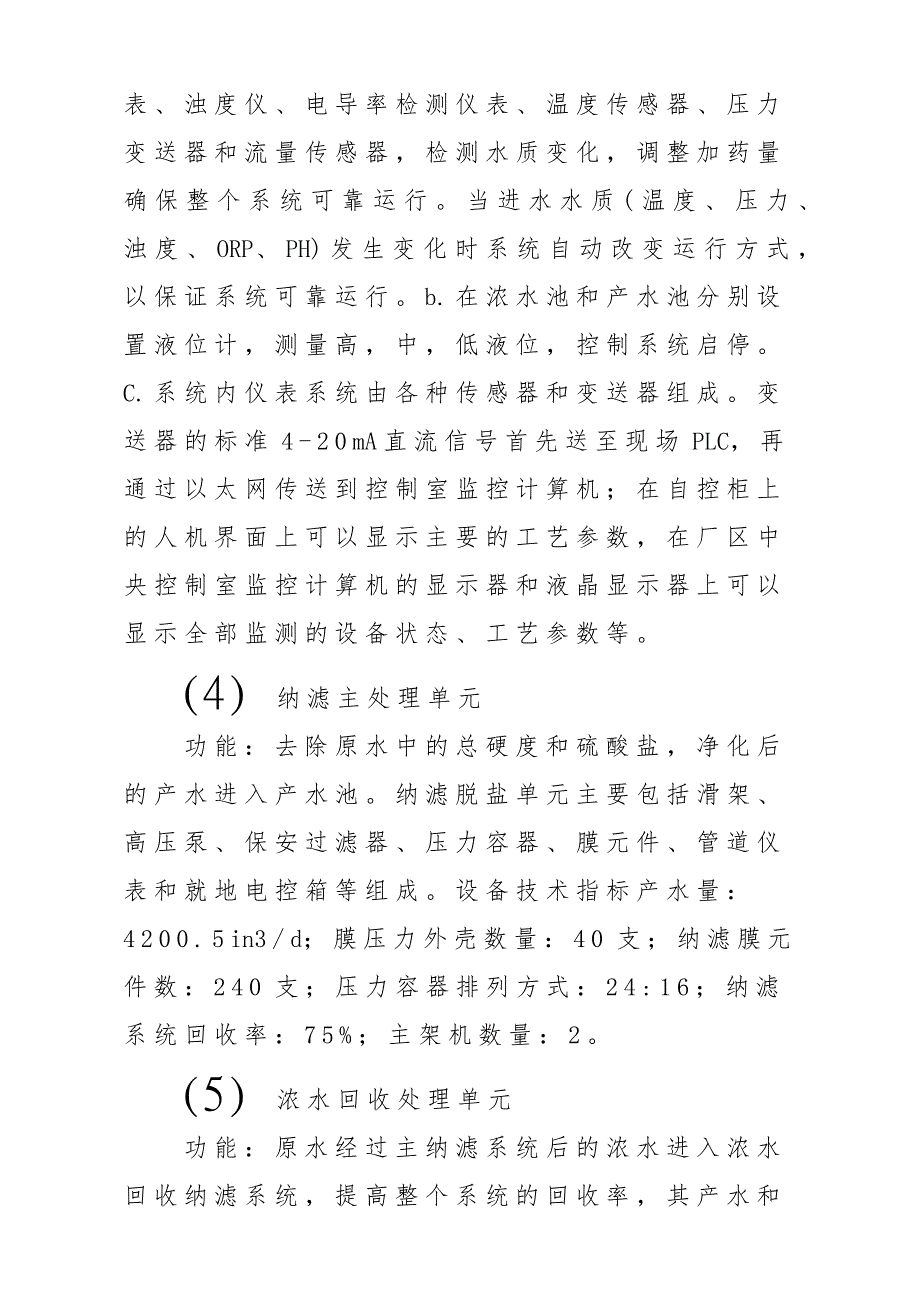 表、浊度仪、电导率检测仪表、温度传感器、压力
变送器和流量传感器，检测水质变化，调整加药量
确保整个系统可靠运行。当进水水质(温度、压力、
浊度、ORP、PH)发生变化时系统自动改变运行方式，
以保证系统可靠运行。b.在浓水池和产水池分别设
置液位计，测量高，中，低液位，控制系统启停。
C.系统内仪表系统由各种传感器和变送器组成。变
送器的标准4-20mA直流信号首先送至现场PLC，再
通过以太网传送到控制室监控计算机；在自控柜上
的人机界面上可以显示主要的工艺参数，在厂区中
央控制室监控计算机的显示器和液晶显示器上可以
显示全部监测的设备状态、工艺参数等。
(4) 纳滤主处理单元
功能：去除原水中的总硬度和硫酸盐，净化后
的产水进入产水池。纳滤脱盐单元主要包括滑架、
高压泵、保安过滤器、压力容器、膜元件、管道仪
表和就地电控箱等组成。设备技术指标产水量：
4200.5in3/d；膜压力外壳数量：40支；纳滤膜元
件数：240支；压力容器排列方式：24:16；纳滤
系统回收率：75%；主架机数量：2。
(5) 浓水回收处理单元
功能：原水经过主纳滤系统后的浓水进入浓水
回收纳滤系统，提高整个系统的回收率，其产水和